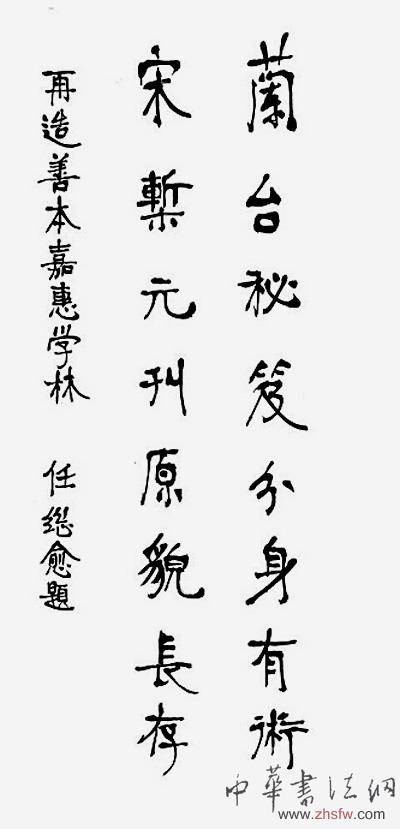 蘭台秘笈分身有術
宋槧元刊原貌長存
再造善本嘉惠学林
任继愈題
中華書法網
www.zhsfw.com